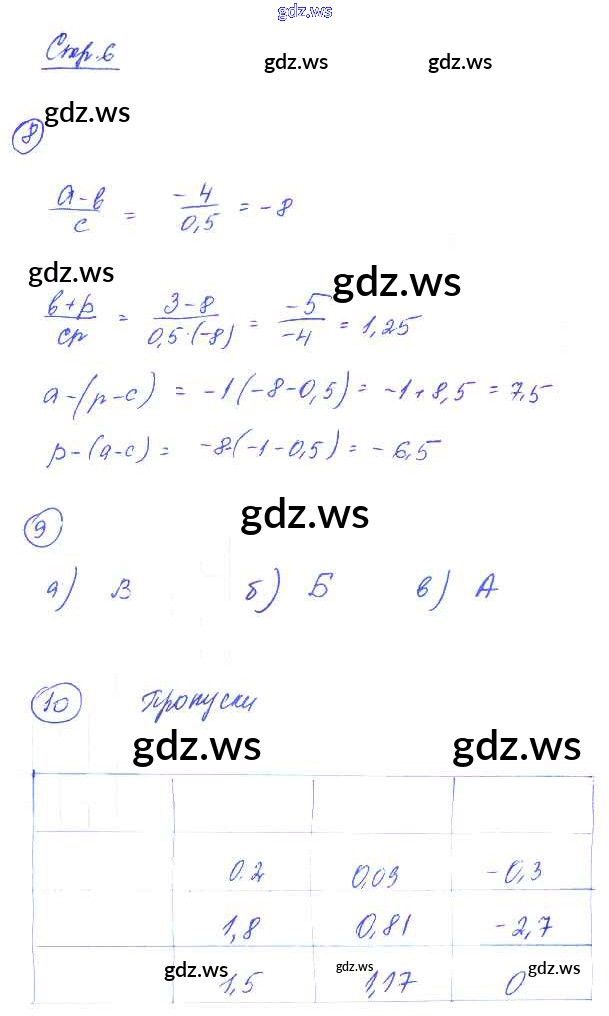 gdz.ws
Стр. 6
gdz.ws gdz.ws
gdz.ws
8
(a-b)/c = -4/0,5 = -8
gdz.ws gdz.ws
(b+p)/cp = (3-8)/(0,5·(-8)) = -5/-4 = 1,25
a-(p-c) = -1(-8-0,5) = -1+8,5 = 7,5
p-(a-c) = -8-(-1-0,5) = -6,5
gdz.ws
9
а) В б) Б в) А
10 Пропуски
gdz.ws gdz.ws
0.2 0,09 -0,3
1,8 0,81 -2,7
gdz.ws gdz.ws gdz.ws
1,5 1,17 0